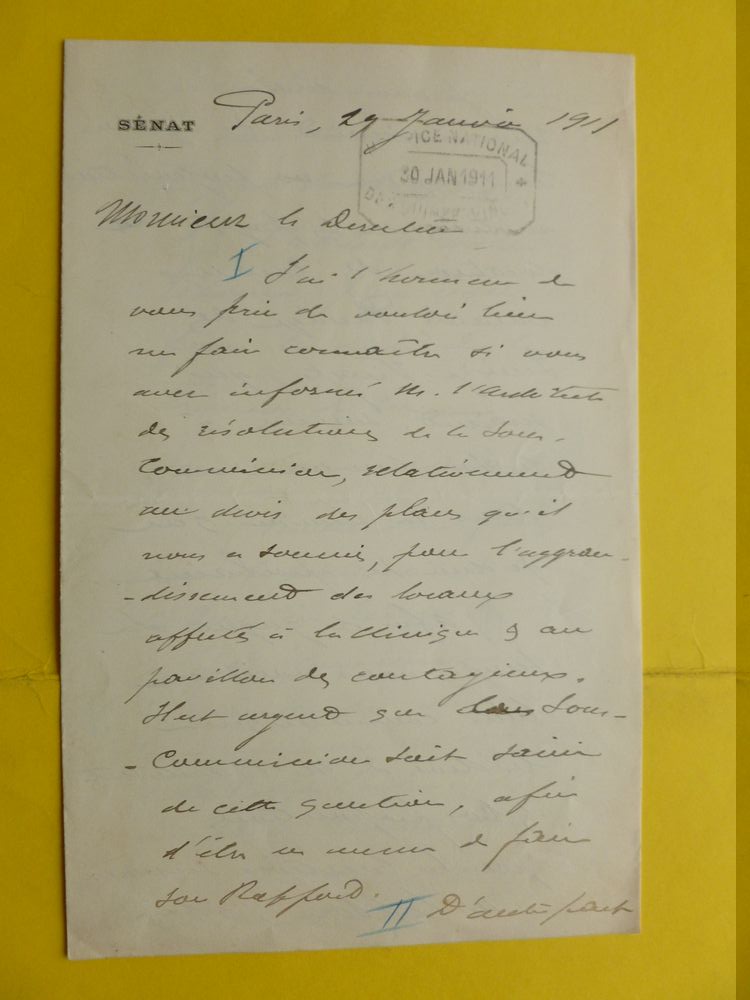 SÉNAT
Paris, 29 Janvier 1911
HOSPICE NATIONAL
30 JAN 1911
Monsieur le Directeur
I J'ai l'honneur de
vous prier de vouloir bien
me faire connaître si vous
avez informé M. l'architecte
des résolutions de la Sous-
Commission, relativement
au devis des plans qu'il
nous a soumis, pour l'aggran-
-dissement des locaux
affectés à la clinique & au
pavillon des contagieux.
Il est urgent que la Sous-
-Commission soit saisie
de cette question, afin
d'être en mesure de faire
son Rapport.
II D'autre part